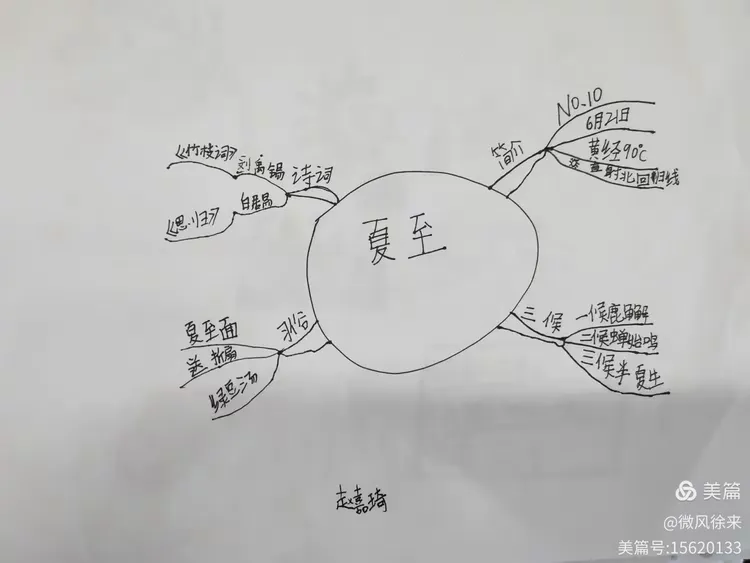 夏至
简介
NO.10
6月21日
黄经90℃
直射北回归线
三候
一候鹿角解
二候蝉始鸣
三候半夏生
诗词
刘禹锡
《竹枝词》
白居易
《思归》
习俗
夏至面
送折扇
绿豆汤
赵嘉琦
美篇
@微风徐来
美篇号:15620133